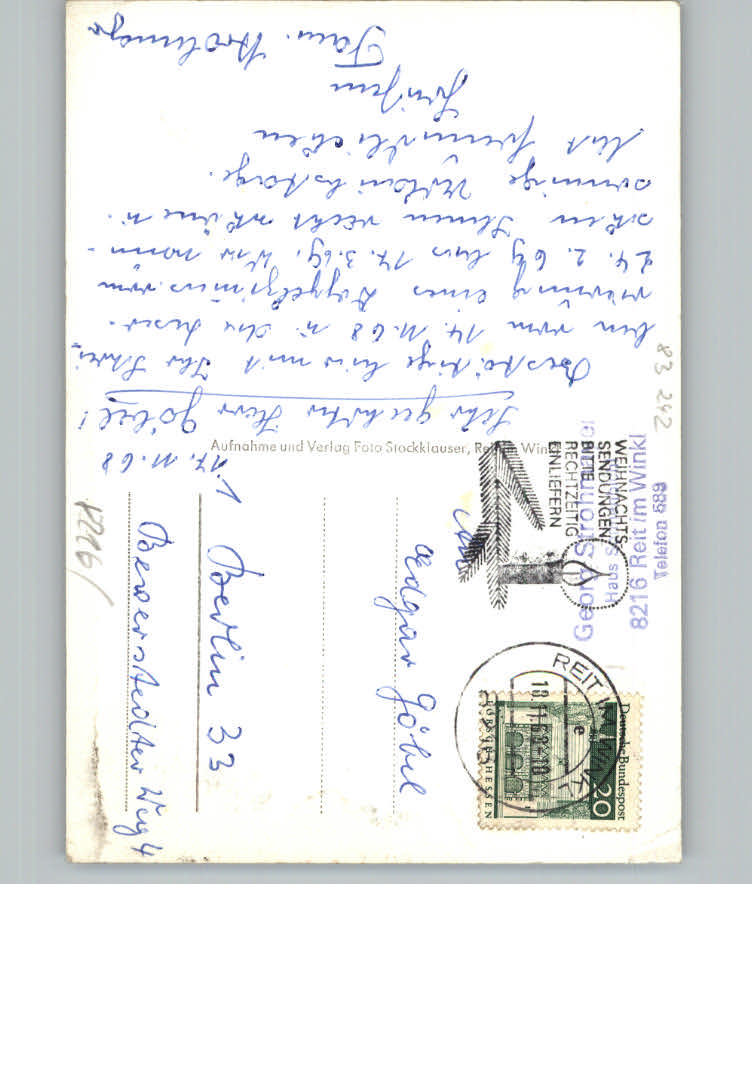 17.11.68
Sehr geehrter Herr Göbel!
Bestätige hiermit Ihr Schrei-
ben vom 14.11.68 u. die Reser-
vierung eines Doppelzimmers vom
24.2.69 bis 17.3.69. Wir wün-
schen Ihnen recht schöne u.
sonnige Urlaubstage.
Mit freundlichen
Grüßen
Fam.
Aufnahme und Verlag Foto Stockklauser, Reit im Winkl
83 242
Georg
Haus
8216 Reit im Winkl
Telefon 589
WEIHNACHTS-
SENDUNGEN
BITTE
RECHTZEITIG
EINLIEFERN
REIT IM WINKL
18.11.68-18
e
8216
Deutsche Bundespost
20
LORSCH/HESSEN
An
Edgar Göbel
1 Berlin 33
Beverstedter Weg 4